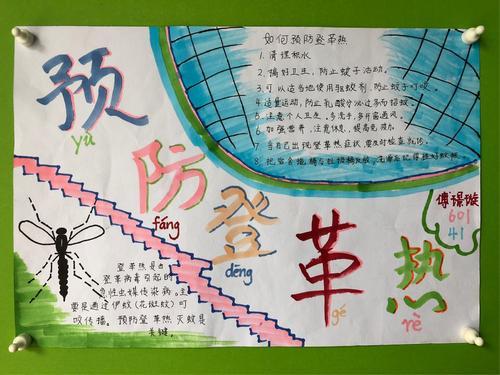 如何预防登革热
1. 清理积水
2. 搞好卫生，防止蚊子活动。
3. 可以适当地使用驱蚊剂，防止蚊子叮咬。
4. 适量运动，防止乳酸分泌过多而招蚊。
5. 注意个人卫生，多洗手，多开窗通风。
6. 加强营养，注意休息，提高免疫力。
7. 当自己出现登革热症状，要及时检查就诊。
8. 把
预
yù
防
fáng
登
dēng
革
gé
热
rè
傅璟璇
601
41
登革热是由
登革病毒引起的
急性虫媒传染病。主
要是通过伊蚊（花斑蚊）叮
咬传播。预防登革热，灭蚊是
关键。